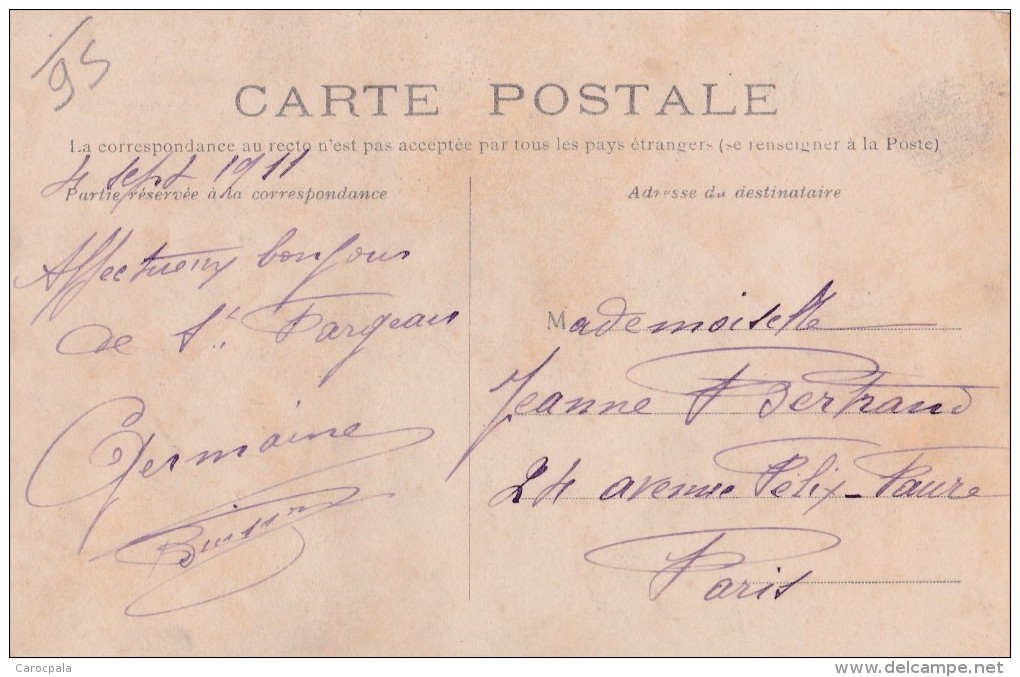 95
CARTE POSTALE
La correspondance au recto n'est pas acceptée par tous les pays étrangers (se renseigner à la Poste)
4 sept 1911
Partie réservée à la correspondance
Adresse du destinataire
Affectueux bonjour
de St. Fargeau
Germaine
Mademoiselle
Jeanne Bertrand
24 avenue Félix-Faure
Paris
Carocpala
www.delcampe.net